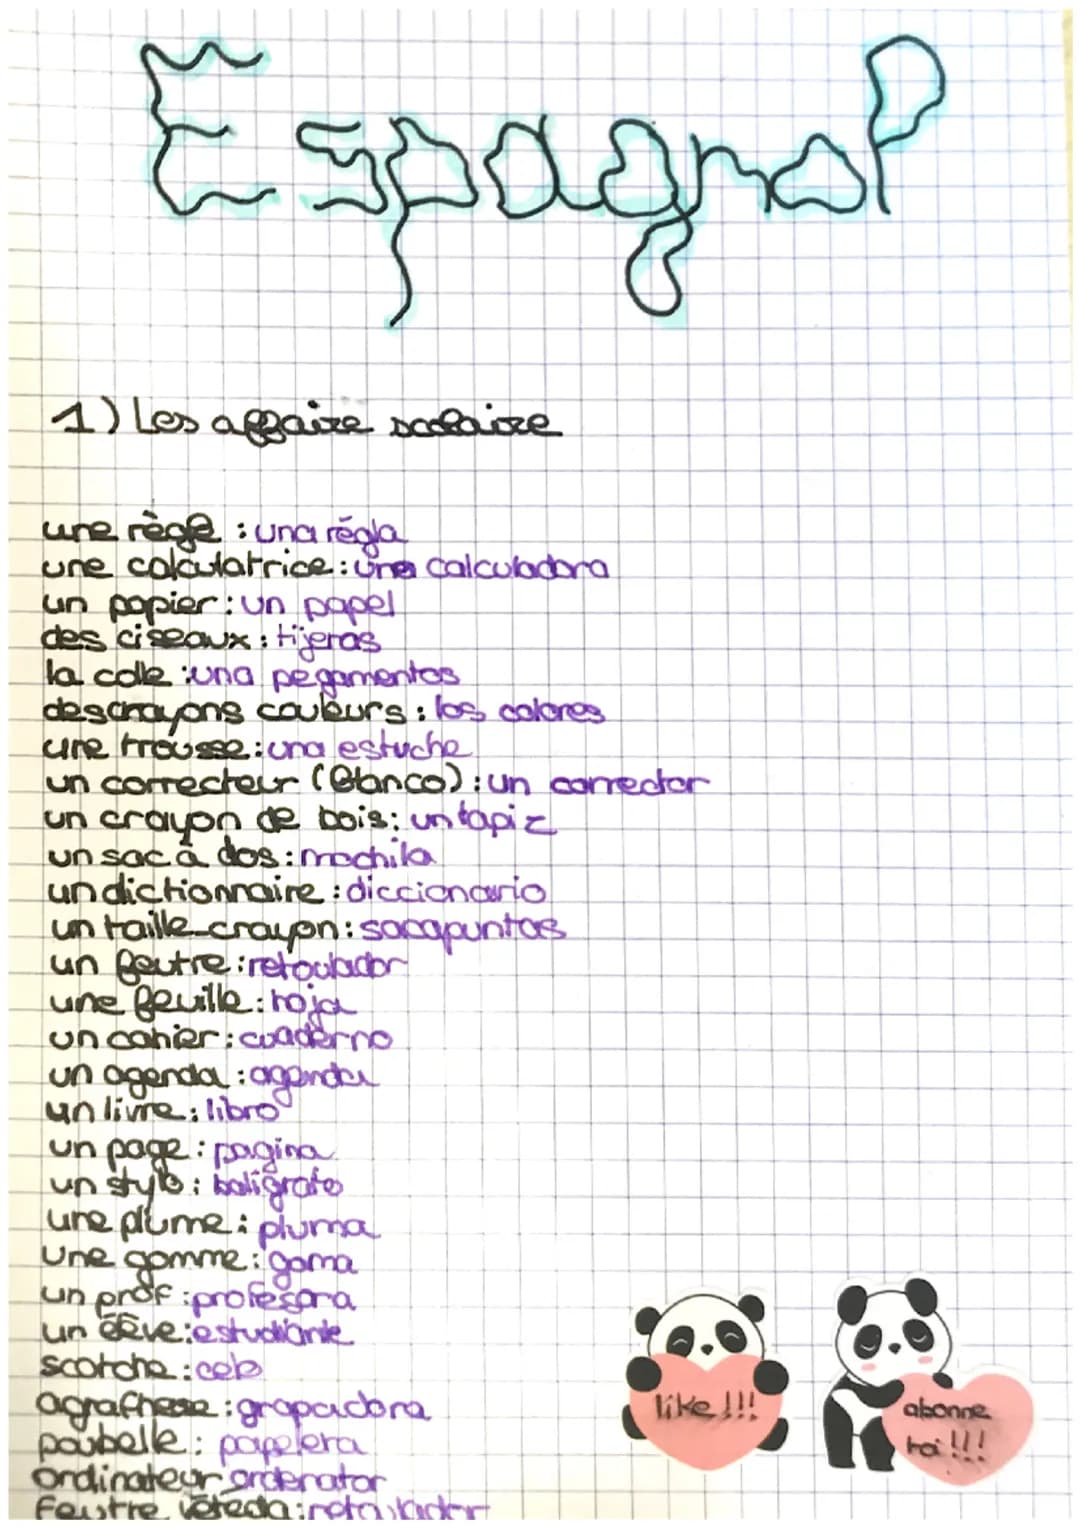 Espagnol
1) Les affaire scolaire
une règle : una régla
une calculatrice : una calculadora
un papier : un papel
des ciseaux : tijeras
la colle : una pegamentos
des crayons couleurs : los colores
une trousse : una estuche
un correcteur (Blanco) : un corrector
un crayon de bois : un lapiz
un sac à dos : mochila
un dictionnaire : diccionario
un taille-crayon : sacapuntas
un feutre : retoulador
une feuille : hoja
un cahier : cuaderno
un agenda : agenda
un livre : libro
un page : pagina
un stylo : boligrafo
une plume : pluma
une gomme : goma
un prof : profesora
un élève : estudiante
scotche : celo
agrafhese : grapadora
poubelle : papelera
ordinateur ordenator
feutre : retoulador
like !!!
abonne
toi !!!